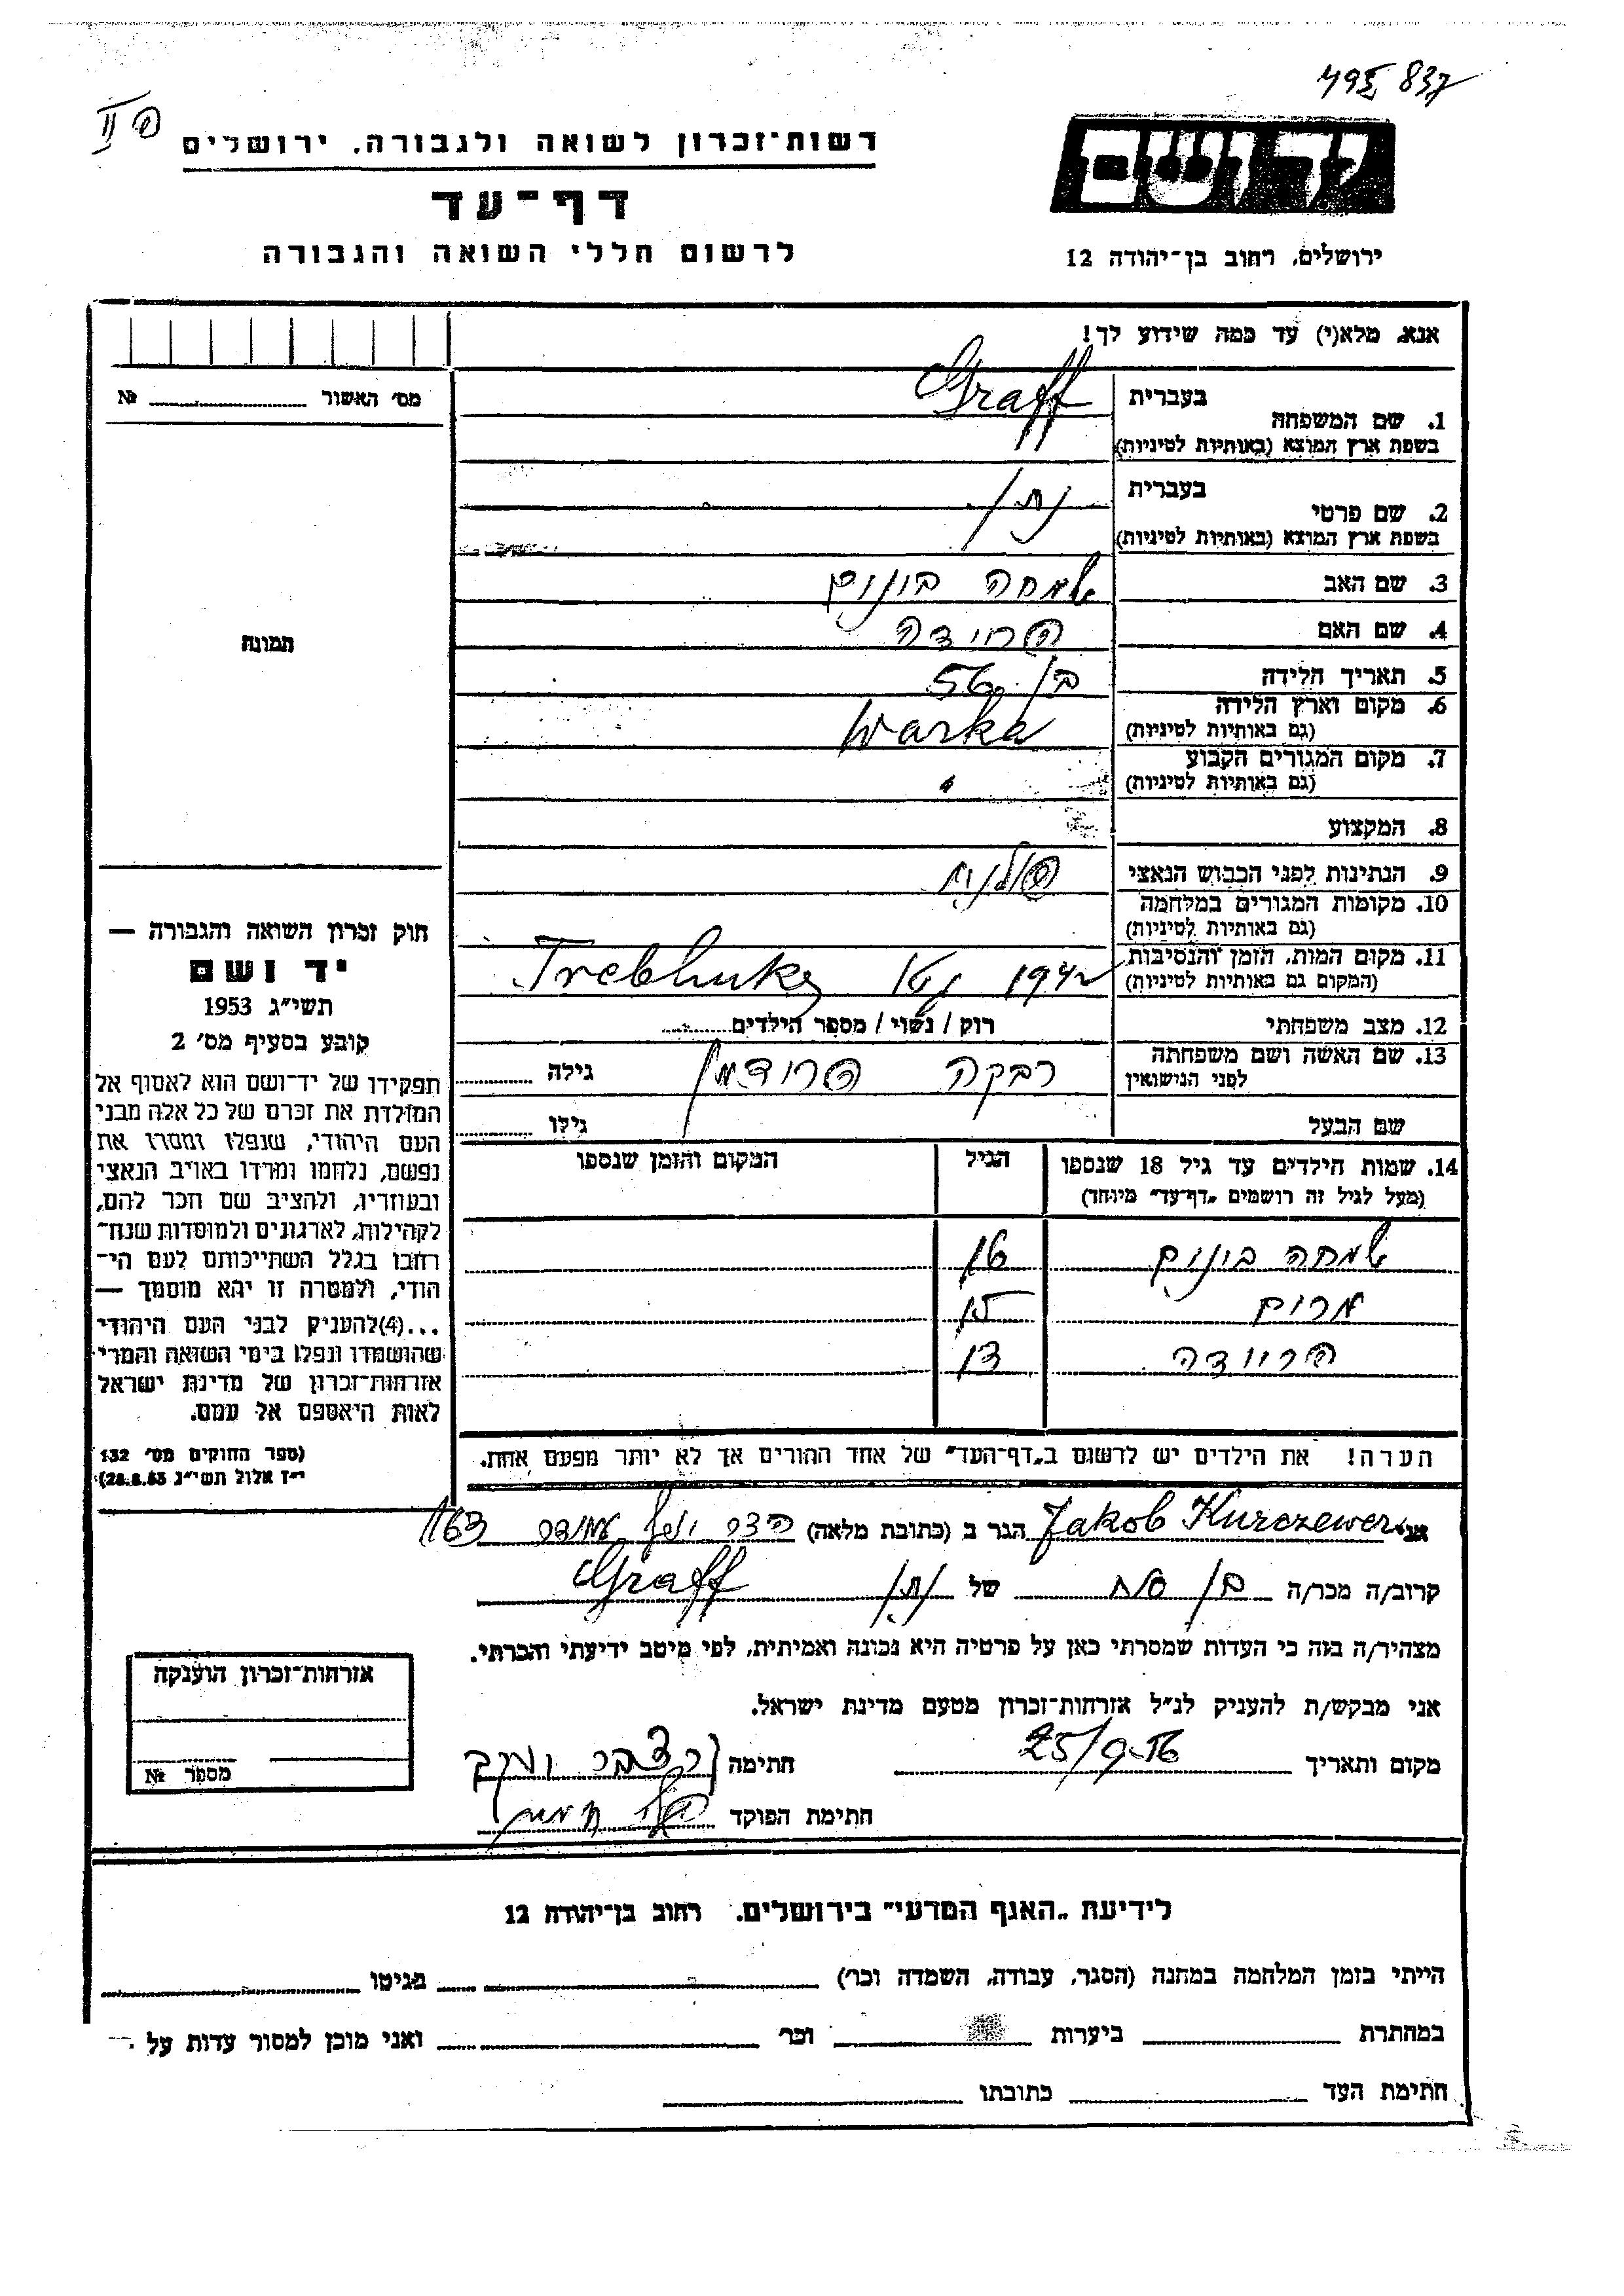 795 837
רשות־זכרון לשואה ולגבורה, ירושלים
דף־עד
לרשום חללי השואה והגבורה
יד ושם
ירושלים, רחוב בן־יהודה 12
אנא, מלא(י) עד כמה שידוע לך!
מס' האשור № 
תמונה
1. שם המשפחה בעברית Graff
בשפת ארץ המוצא (באותיות לטיניות)
2. שם פרטי בעברית נתן
בשפת ארץ המוצא (באותיות לטיניות)
3. שם האב שמחה בונום
4. שם האם פרידה
5. תאריך הלידה בן 56
6. מקום וארץ הלידה Warka
(גם באותיות לטיניות)
7. מקום המגורים הקבוע "
(גם באותיות לטיניות)
8. המקצוע
9. הנתינות לפני הכבוש הנאצי פולנית
10. מקומות המגורים במלחמה
(גם באותיות לטיניות)
11. מקום המות, הזמן והנסיבות 1942 Treblinka
(המקום גם באותיות לטיניות)
12. מצב משפחתי רוק / נשוי / מספר הילדים
13. שם האשה ושם משפחתה רבקה פרודמן גילה
לפני הנישואין
שם הבעל גילו
14. שמות הילדים עד גיל 18 שנספו הגיל המקום והזמן שנספו
(מעל לגיל זה רושמים „דף־עד" מיוחד)
שמחה בונום 16
מרים 15
פריידה 13
הערה! את הילדים יש לרשום ב„דף־העד" של אחד ההורים אך לא יותר מפעם אחת.
חוק זכרון השואה והגבורה —
יד ושם
תשי"ג 1953
קובע בסעיף מס' 2
תפקידו של יד־ושם הוא לאסוף אל
המולדת את זכרם של כל אלה מבני
העם היהודי, שנפלו ומסרו את
נפשם, נלחמו ומרדו באויב הנאצי
ובעוזריו, ולהציב שם וזכר להם,
לקהילות, לארגונים ולמוסדות שנח־
רבו בגלל השתייכותם לעם הי־
הודי, ולמטרה זו יהא מוסמך —
...(4)להעניק לבני העם היהודי
שהושמדו ונפלו בימי השואה והמרי
אזרחות־זכרון של מדינת ישראל
לאות היאספם אל עמם.
(ספר החוקים מס' 132
י"ז אלול תשי"ג 28.8.53)
אני Jakob Kurczewer הגר ב (כתובת מלאה) 163
קרוב/ה מכר/ה בן של נתן Graff
מצהיר/ה בזה כי העדות שמסרתי כאן על פרטיה היא נכונה ואמיתית, לפי מיטב ידיעתי והכרתי.
אני מבקש/ת להעניק לנ"ל אזרחות־זכרון מטעם מדינת ישראל.
מקום ותאריך 25/9.56 חתימה
חתימת הפוקד
אזרחות־זכרון הוענקה
מספר №
לידיעת „האגף המדעי" בירושלים. רחוב בן־יהודה 12
הייתי בזמן המלחמה במחנה (הסגר, עבודה, השמדה וכו') בגיטו
במחתרת ביערות וכו' ואני מוכן למסור עדות על
חתימת העד כתובתו